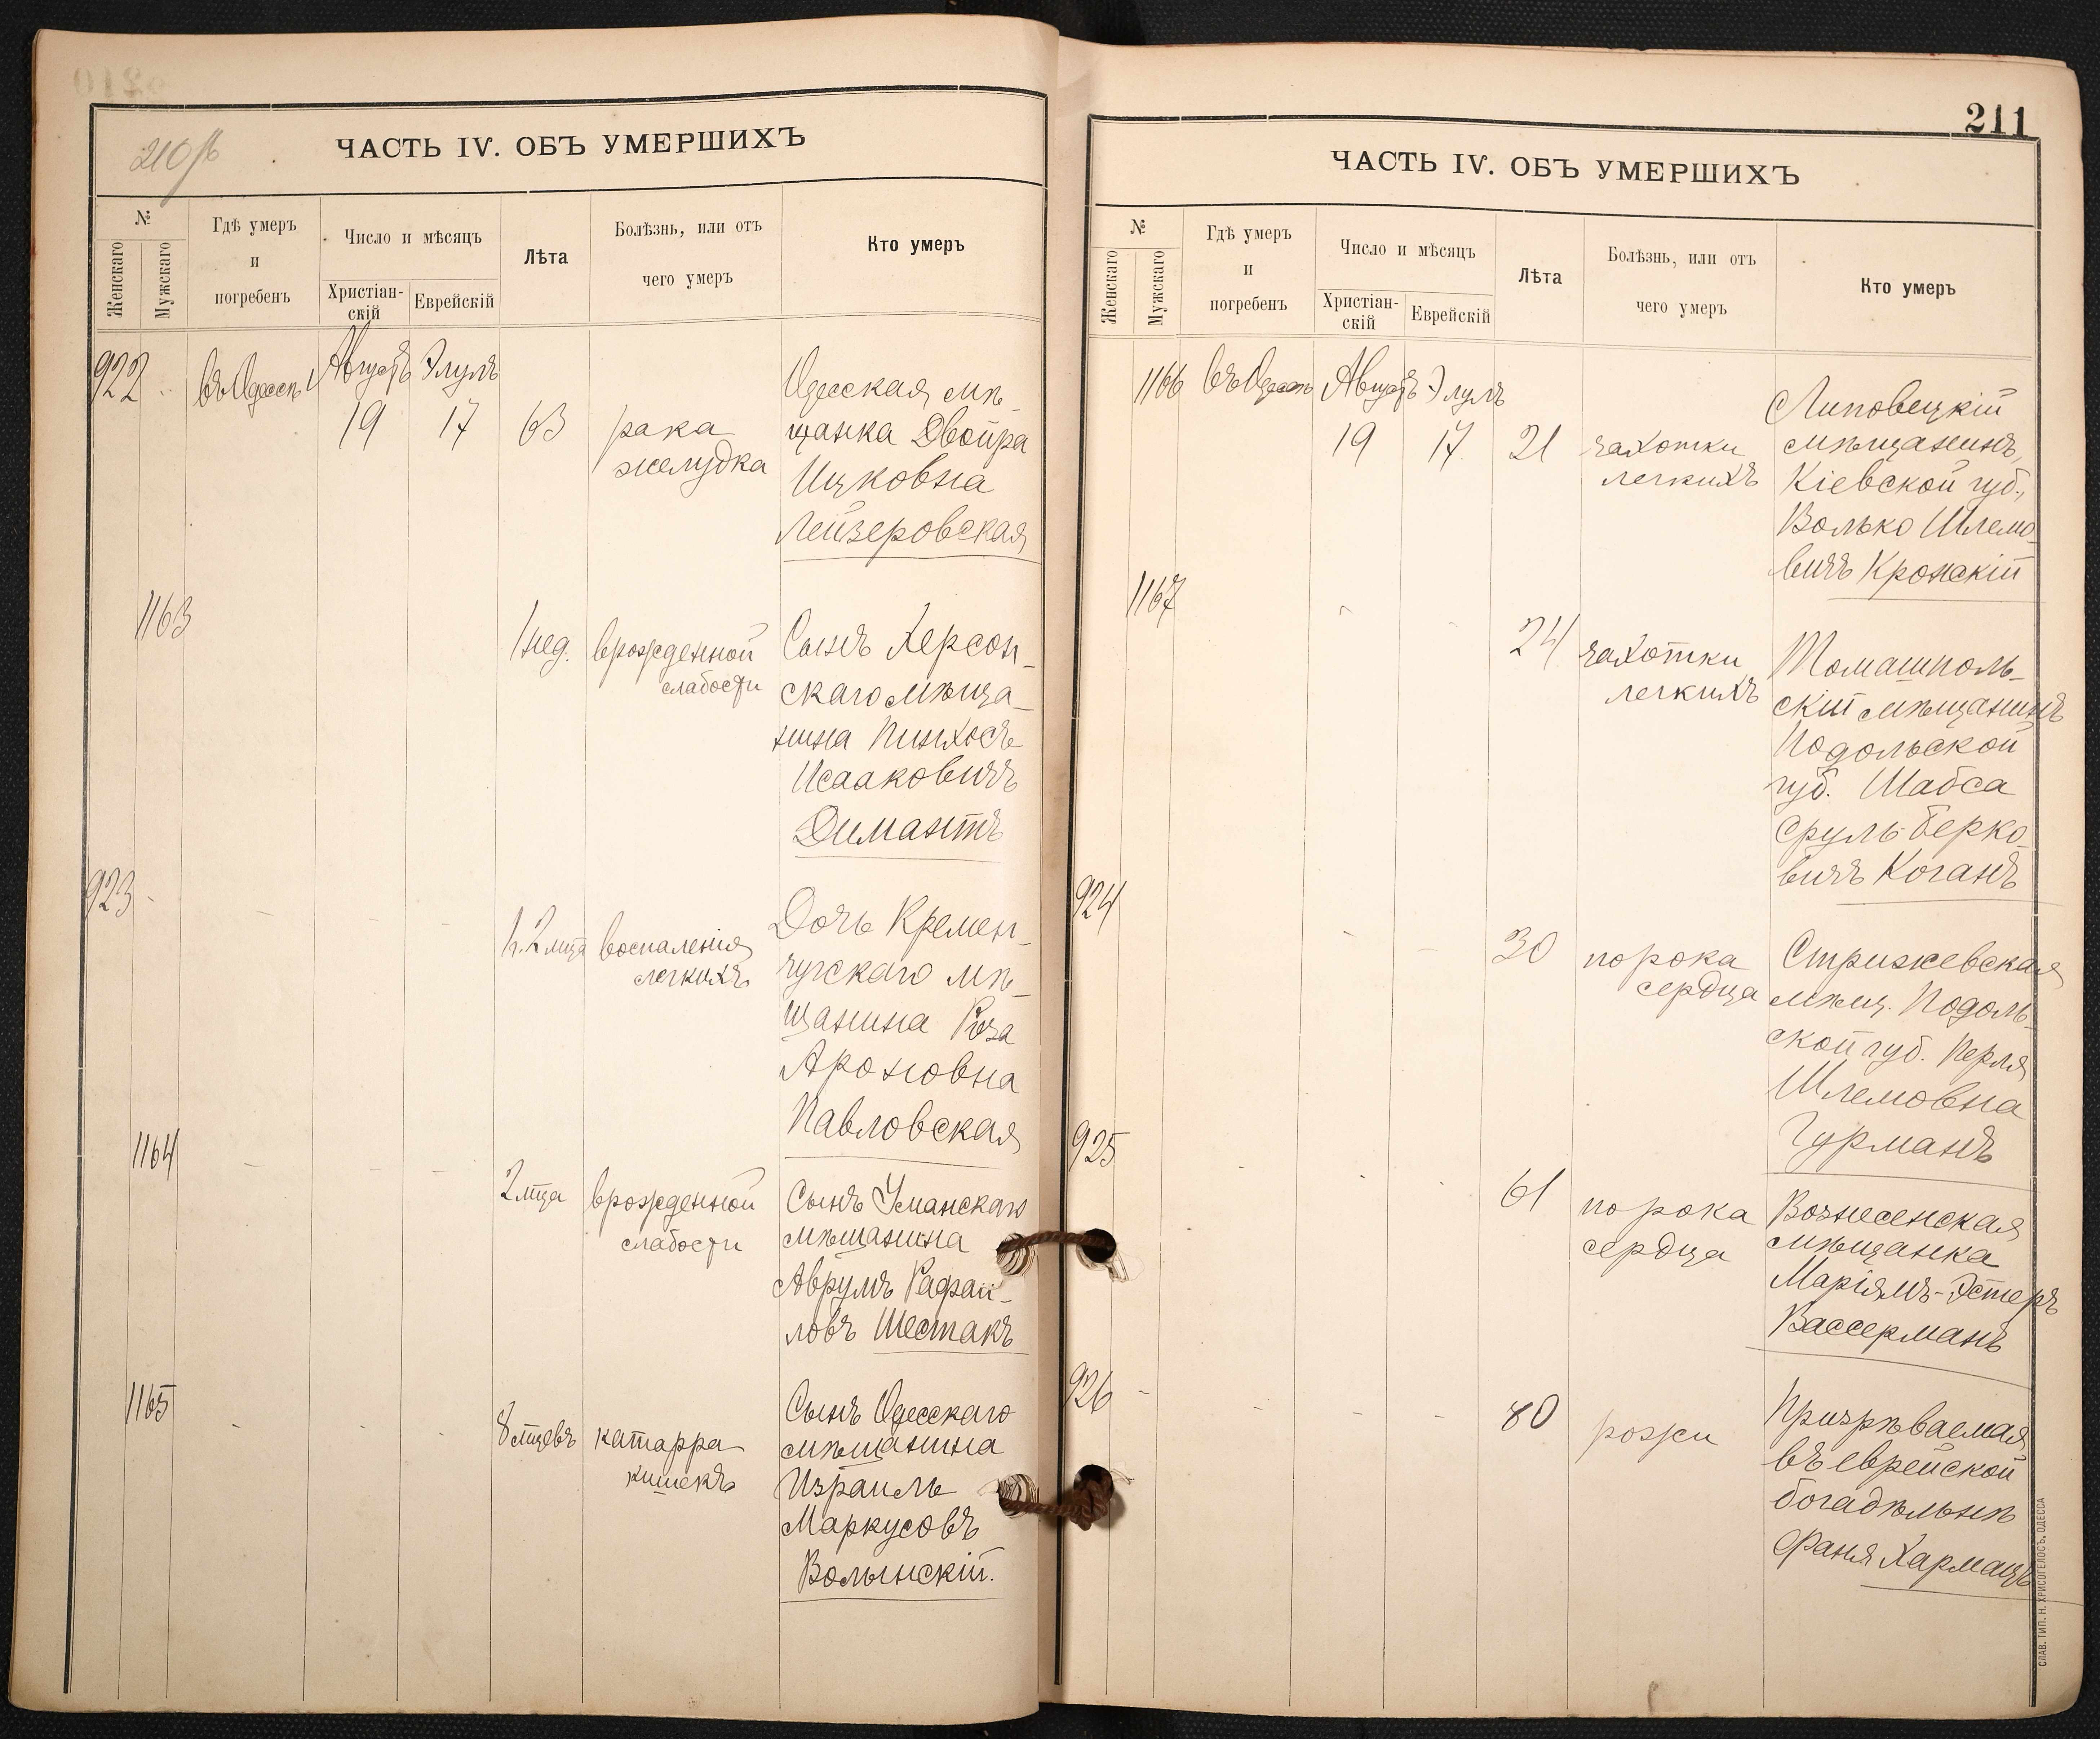 210 об
ЧАСТЬ IV. ОБЪ УМЕРШИХЪ
№
Женскаго
Мужскаго
Гдѣ умеръ
и
погребенъ
Число и мѣсяцъ
Христіан-
скій
Еврейскій
Лѣта
Болѣзнь, или отъ
чего умеръ
Кто умеръ
922 въ Одессѣ Августъ Элулъ
19 17 63
рака
желудка
Одесская мѣ-
щанка Двойра
Ицковна
Лейзеровская
1163
1 нед.
врожденной
слабости
Сынъ Херсон-
скаго мѣща-
нина Пинхосъ
Исааковичъ
Димантъ
923
1 г. 2 мца
воспаленія
легкихъ
Дочь Кремен-
чугскаго мѣ-
щанина Роза
Ароновна
Павловская
1164
2 мца
врожденной
слабости
Сынъ Уманскаго
мѣщанина
Аврумъ Рафаи-
ловъ Шестакъ
1165
8 мцевъ
катарра
кишекъ
Сынъ Одесскаго
мѣщанина
Израиль
Маркусовъ
Волынскій.
211
ЧАСТЬ IV. ОБЪ УМЕРШИХЪ
№
Женскаго
Мужскаго
Гдѣ умеръ
и
погребенъ
Число и мѣсяцъ
Христіан-
скій
Еврейскій
Лѣта
Болѣзнь, или отъ
чего умеръ
Кто умеръ
1166 въ Одессѣ Августъ Элулъ
19 17 21
чахотки
легкихъ
Липовецкій
мѣщанинъ,
Кіевской губ.,
Волько Шлемо-
вичъ Кронскій
1167
24
чахотки
легкихъ
Томашполь-
скій мѣщанинъ
Подольской
губ. Шабса
Сруль Берко-
вичъ Коганъ
924
30
порока
сердца
Стрижевская
мѣщ. Подоль-
ской губ. Перля
Шлемовна
Гурманъ
925
61
порока
сердца
Вознесенская
мѣщанка
Маріямъ-Эстеръ
Вассерманъ
926
80
рожи
Призрѣваемая
въ еврейской
богадѣльнѣ
Фаня Хармацъ
СЛАВ. ТИП. Н. ХРИСОГЕЛОСЪ, ОДЕССА